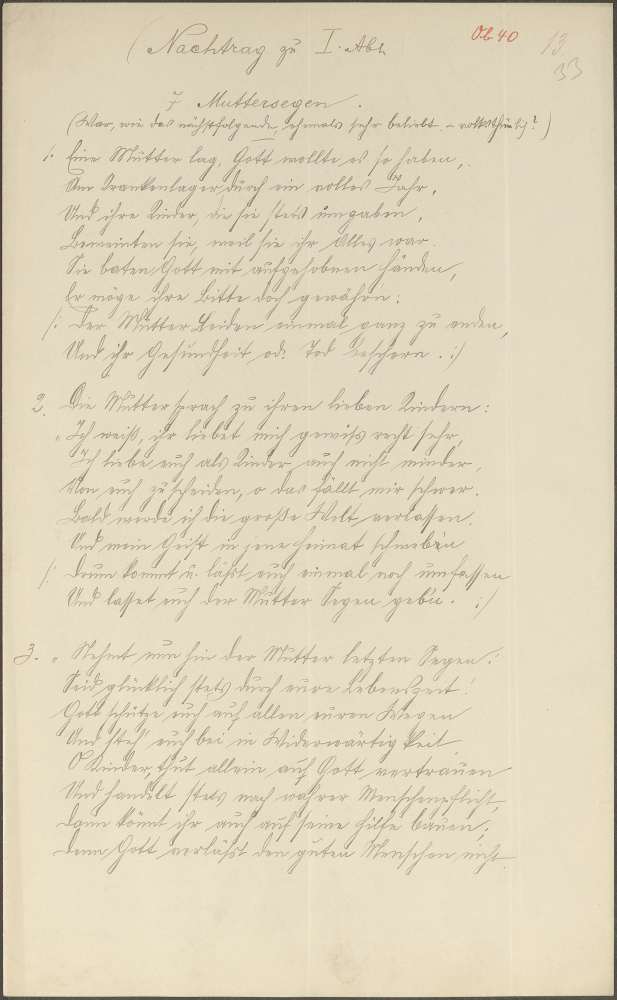 (Nachtrag zu I. Abt.
Ob 40
13
33
7 Muttersegen.
(War, wie das nächstfolgende, ehemals sehr beliebt. – volksthüml.?)
1. Eine Mutter lag, Gott wollte es so haben,
Am Krankenlager durch ein volles Jahr,
Und ihre Kinder, die sie stets umgaben,
Beweinten sie, weil sie ihr Alles war.
Sie baten Gott mit aufgehobnen Händen,
Er möge ihre Bitte doch gewährn:
/: Der Mutter Leiden einmal ganz zu enden,
Und ihr Gesundheit od. Tod beschern. :/
2. Die Mutter sprach zu ihren lieben Kindern:
„Ich weiß, ihr liebet mich gewiß recht sehr,
Ich liebe euch als Kinder auch nicht minder,
Von euch zu scheiden, o das fällt mir schwer.
Bald werde ich die große Welt verlassen,
Und mein Geist in jene Heimat schweb'n
/: Drum kommt u. laßt euch einmal noch umfassen
Und lasset euch der Mutter Segen geb'n. :/
3. „Nehmt nun hin der Mutter letzten Segen:
Seid glücklich stets durch eure Lebenszeit!
Gott schütze euch auf allen euren Wegen
Und steh' euch bei in Widerwärtigkeit
O Kinder, thut allein auf Gott vertrauen
Und handelt stets nach wahrer Menschenpflicht,
Dann könnt ihr auch auf seine Hilfe bauen,
Denn Gott verläßt den guten Menschen nicht.